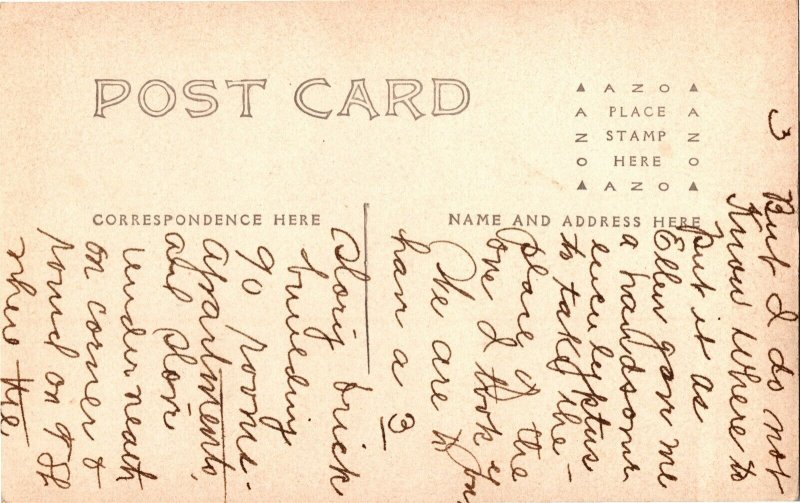 POST CARD
▲ A Z O ▲
A PLACE A
Z STAMP Z
O HERE O
▲ A Z O ▲
CORRESPONDENCE HERE
NAME AND ADDRESS HERE
3
But I do not
Know where to
put it as
Ellen gave me
a handsome
euculyptus
to take the-
place of the
one I took
We are to
han a 3
story brick
building
90 rooms-
apartments,
and store
under neath
on corner &
round on
where the